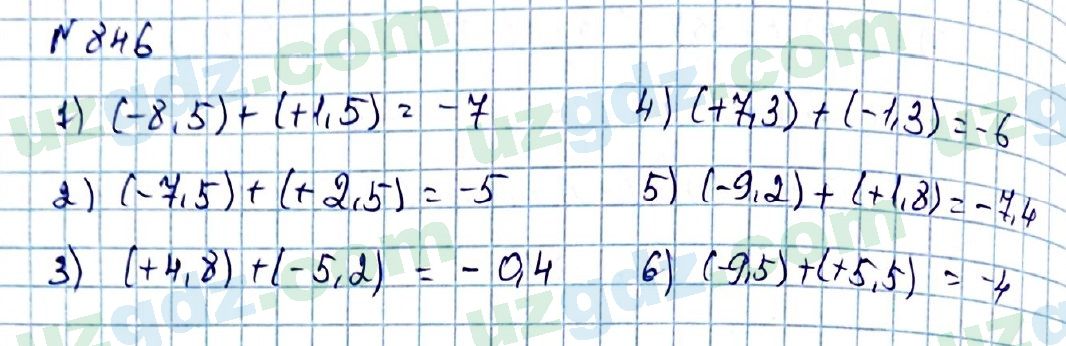 № 846
1) (-8,5) + (+1,5) = -7
2) (-7,5) + (+2,5) = -5
3) (+4,8) + (-5,2) = -0,4
4) (+7,3) + (-1,3) = -6
5) (-9,2) + (+1,8) = -7,4
6) (-9,5) + (+5,5) = -4
uzgdz.com